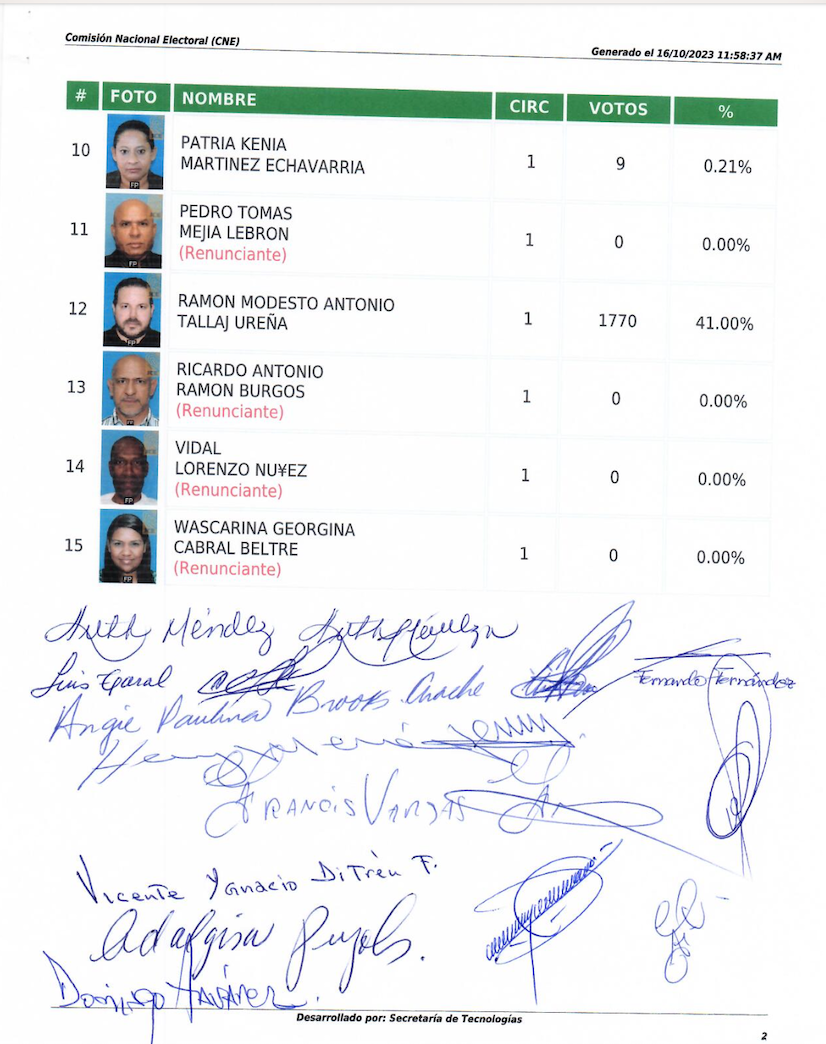 Comisión Nacional Electoral (CNE)
Generado el 16/10/2023 11:58:37 AM
# FOTO NOMBRE CIRC VOTOS %
10 PATRIA KENIA
MARTINEZ ECHAVARRIA 1 9 0.21%
FP
11 PEDRO TOMAS
MEJIA LEBRON 1 0 0.00%
(Renunciante)
FP
12 RAMON MODESTO ANTONIO
TALLAJ UREÑA 1 1770 41.00%
FP
13 RICARDO ANTONIO
RAMON BURGOS 1 0 0.00%
(Renunciante)
FP
14 VIDAL
LORENZO NU¥EZ 1 0 0.00%
(Renunciante)
FP
15 WASCARINA GEORGINA
CABRAL BELTRE 1 0 0.00%
(Renunciante)
FP
Méndez
Luis Fernando Fernández
Angie Paulina Brooks
Francis Vargas
Vicente Ygnacio DiTrèn F.
Adalgisa Pujols.
Domingo
Desarrollado por: Secretaría de Tecnologías
2